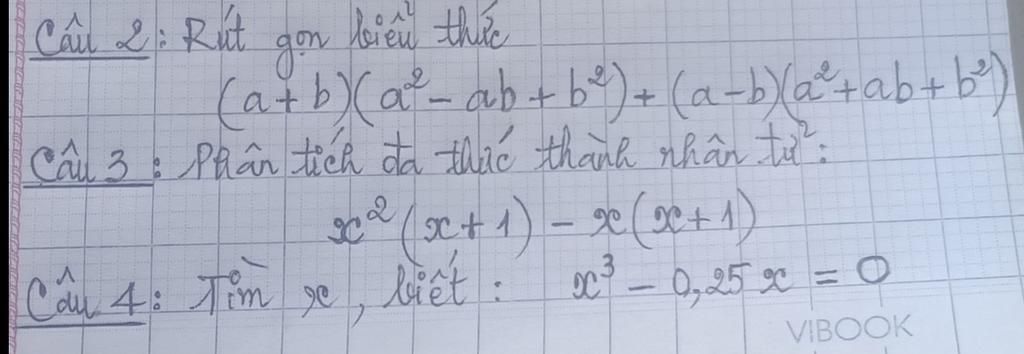 Câu 2: Rút gọn biểu thức
(a+b)(a² - ab + b²) + (a-b)(a² + ab + b²)
Câu 3: Phân tích đa thức thành nhân tử:
x² (x + 1) - x (x + 1)
Câu 4: Tìm x, biết: x³ - 0,25 x = 0
VIBOOK